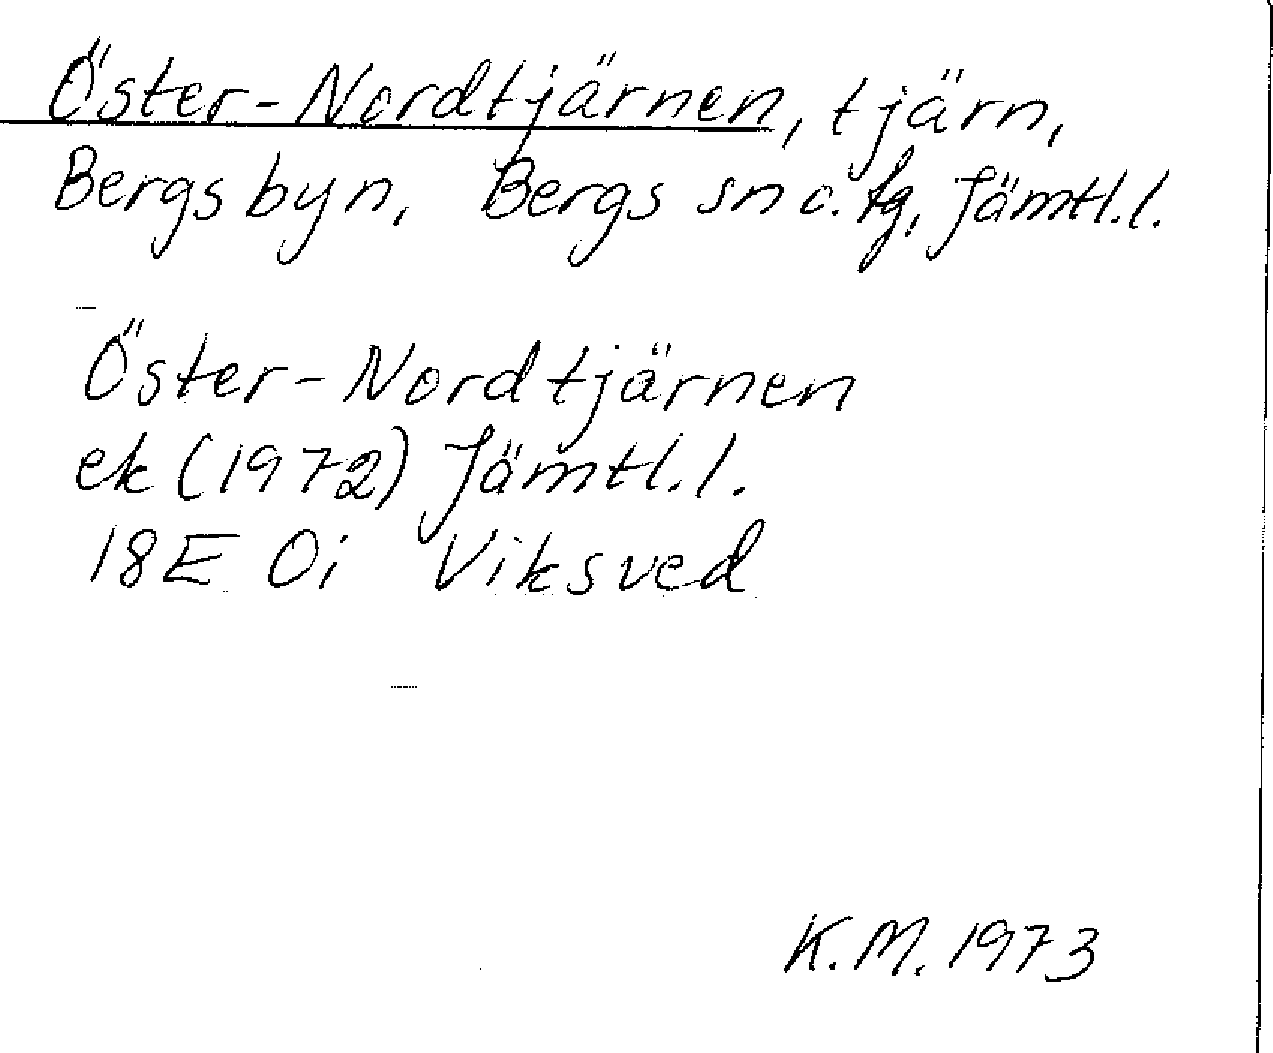 Öster-Nordtjärnen, tjärn,
Bergsbyn, Bergs sn o. tg, Jämtl.l.
Öster-Nordtjärnen
ek (1972) Jämtl.l.
18E 0i Viksved
K.M. 1973